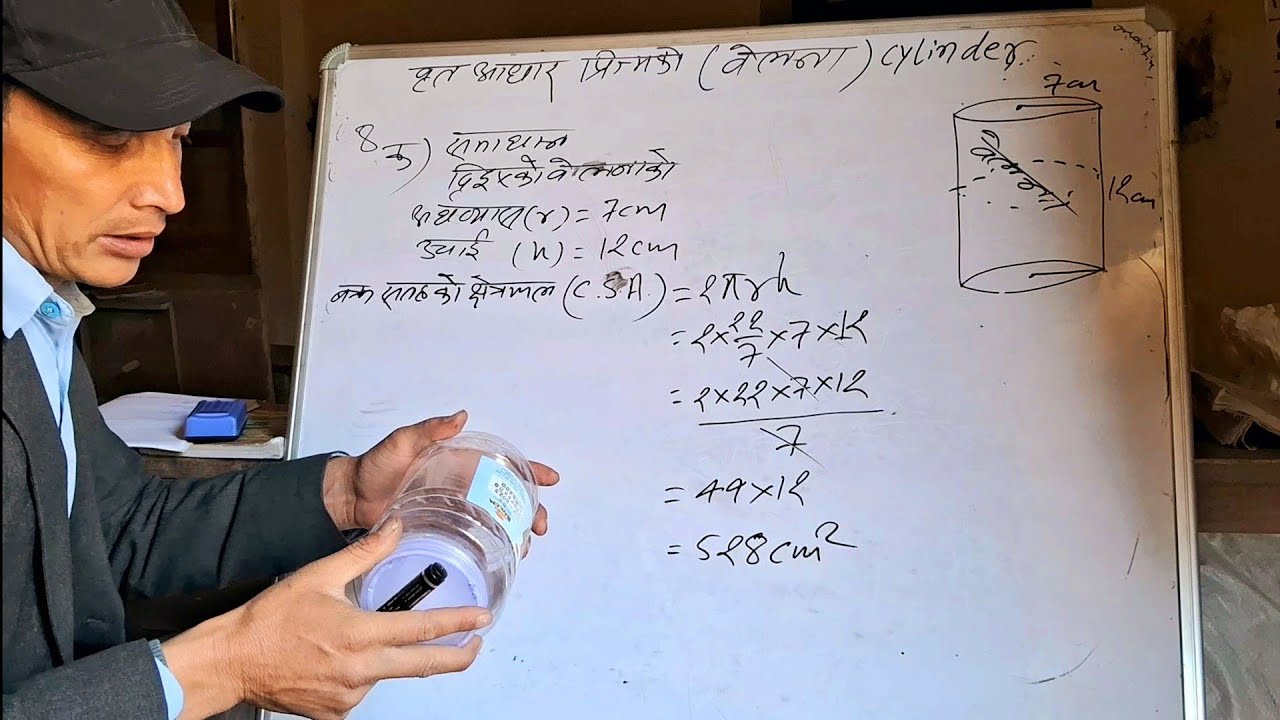 वृत आधार प्रिज्मको (वेलना) cylinder
7cm
8 क) समाधान
दिइएको वेलनाको
अर्धव्यास (r) = 7cm
उचाई (h) = 12cm
वक्र सतहको क्षेत्रफल (C.S.A.) = 2πrh
= 2×22/7×7×12
= 2×22×7×12
7
= 44×12
= 528cm²
वेलना
12cm